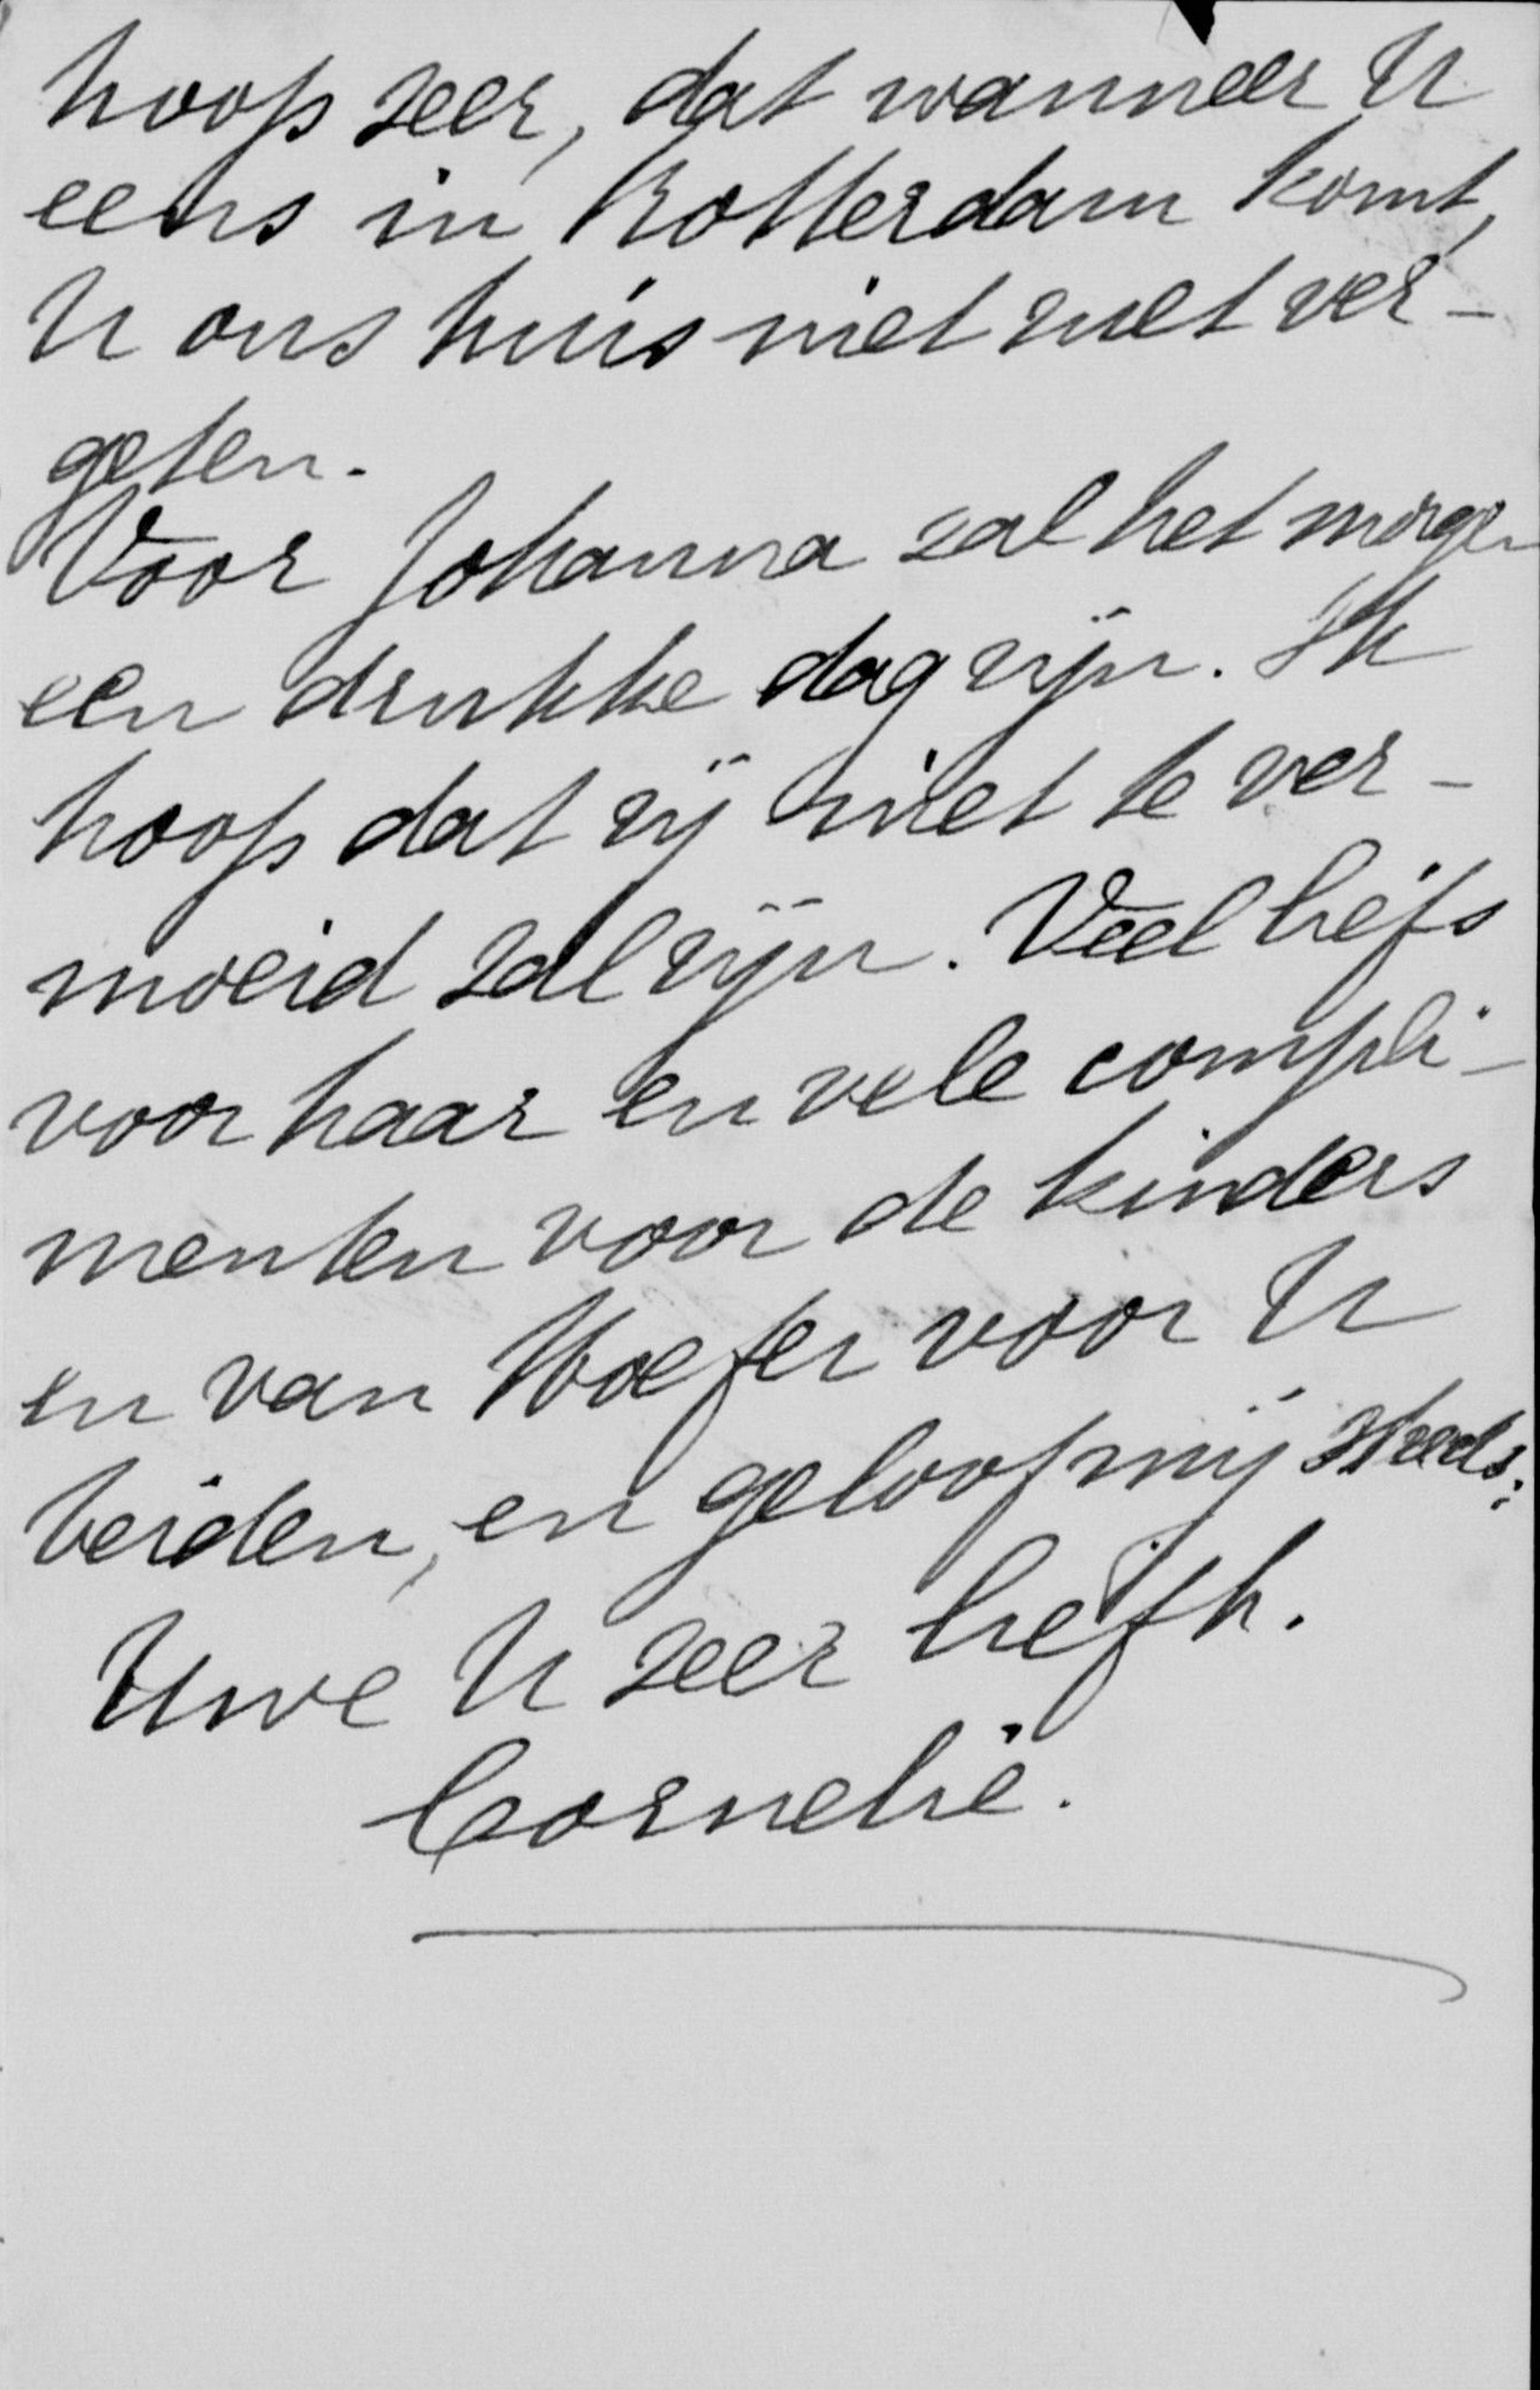 hoop zeer, dat wanneer U
eens in Rotterdam komt,
U ons huis niet zult ver-
geten.
Voor Johanna zal het morgen
een drukke dag zijn. Ik
hoop dat zij niet te ver-
moeid zal zijn. Veel liefs
voor haar en vele compli-
menten voor de kinders
en van voor U
beiden, en geloof mij steeds:
Uwe U zeer liefh.
Cornelie.